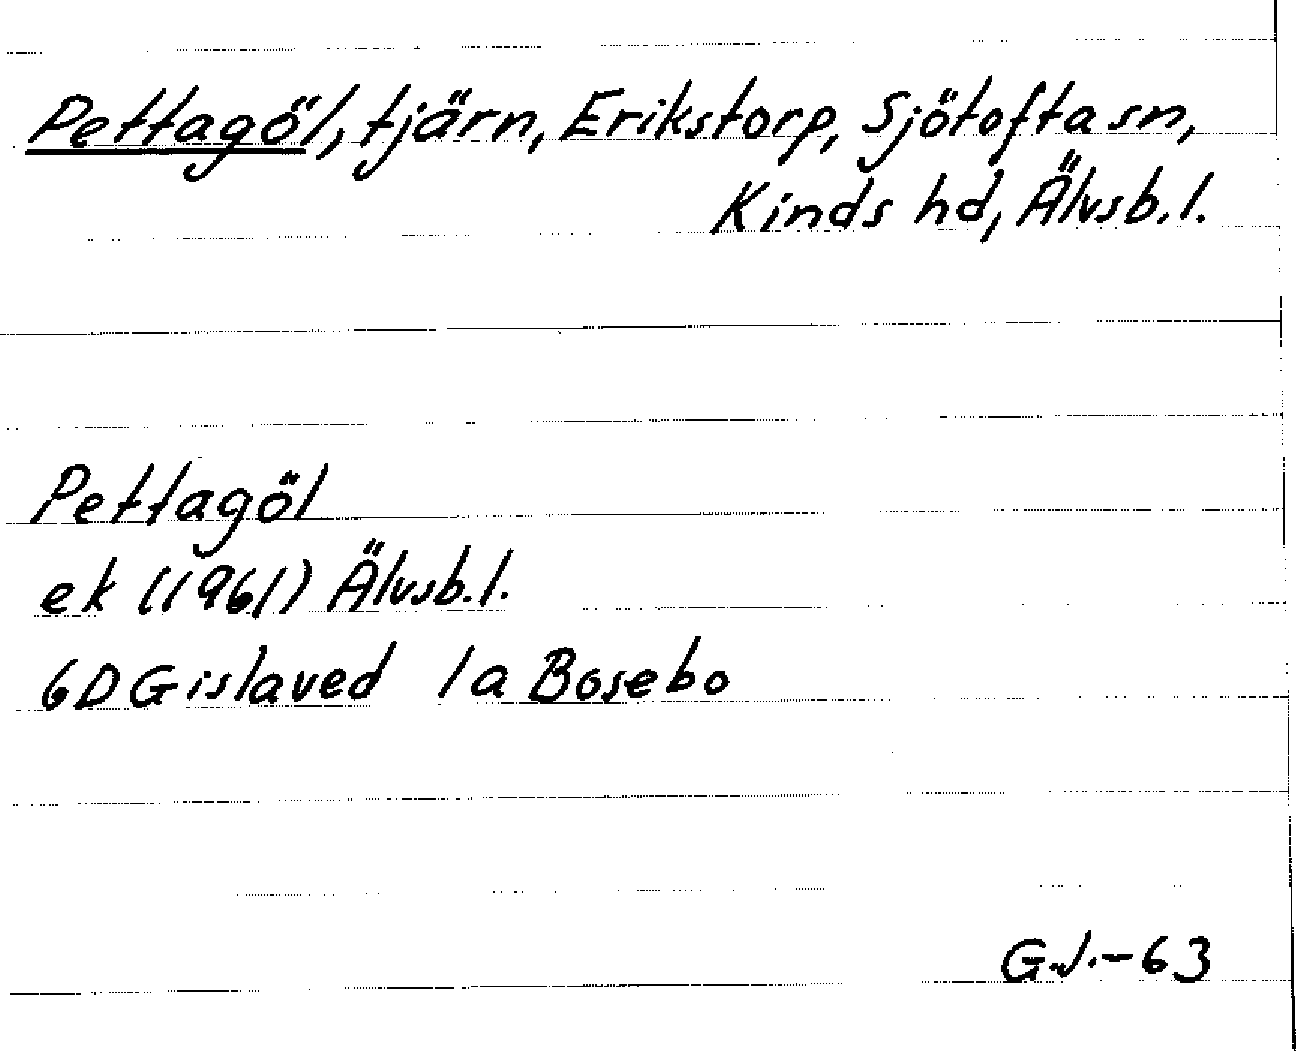 Pettagöl, tjärn, Erikstorp, Sjötofta sn,
Kinds hd, Älvsb. l.
Pettagöl
ek (1961) Älvsb. l.
6D Gislaved 1a Bosebo
G.J.-63